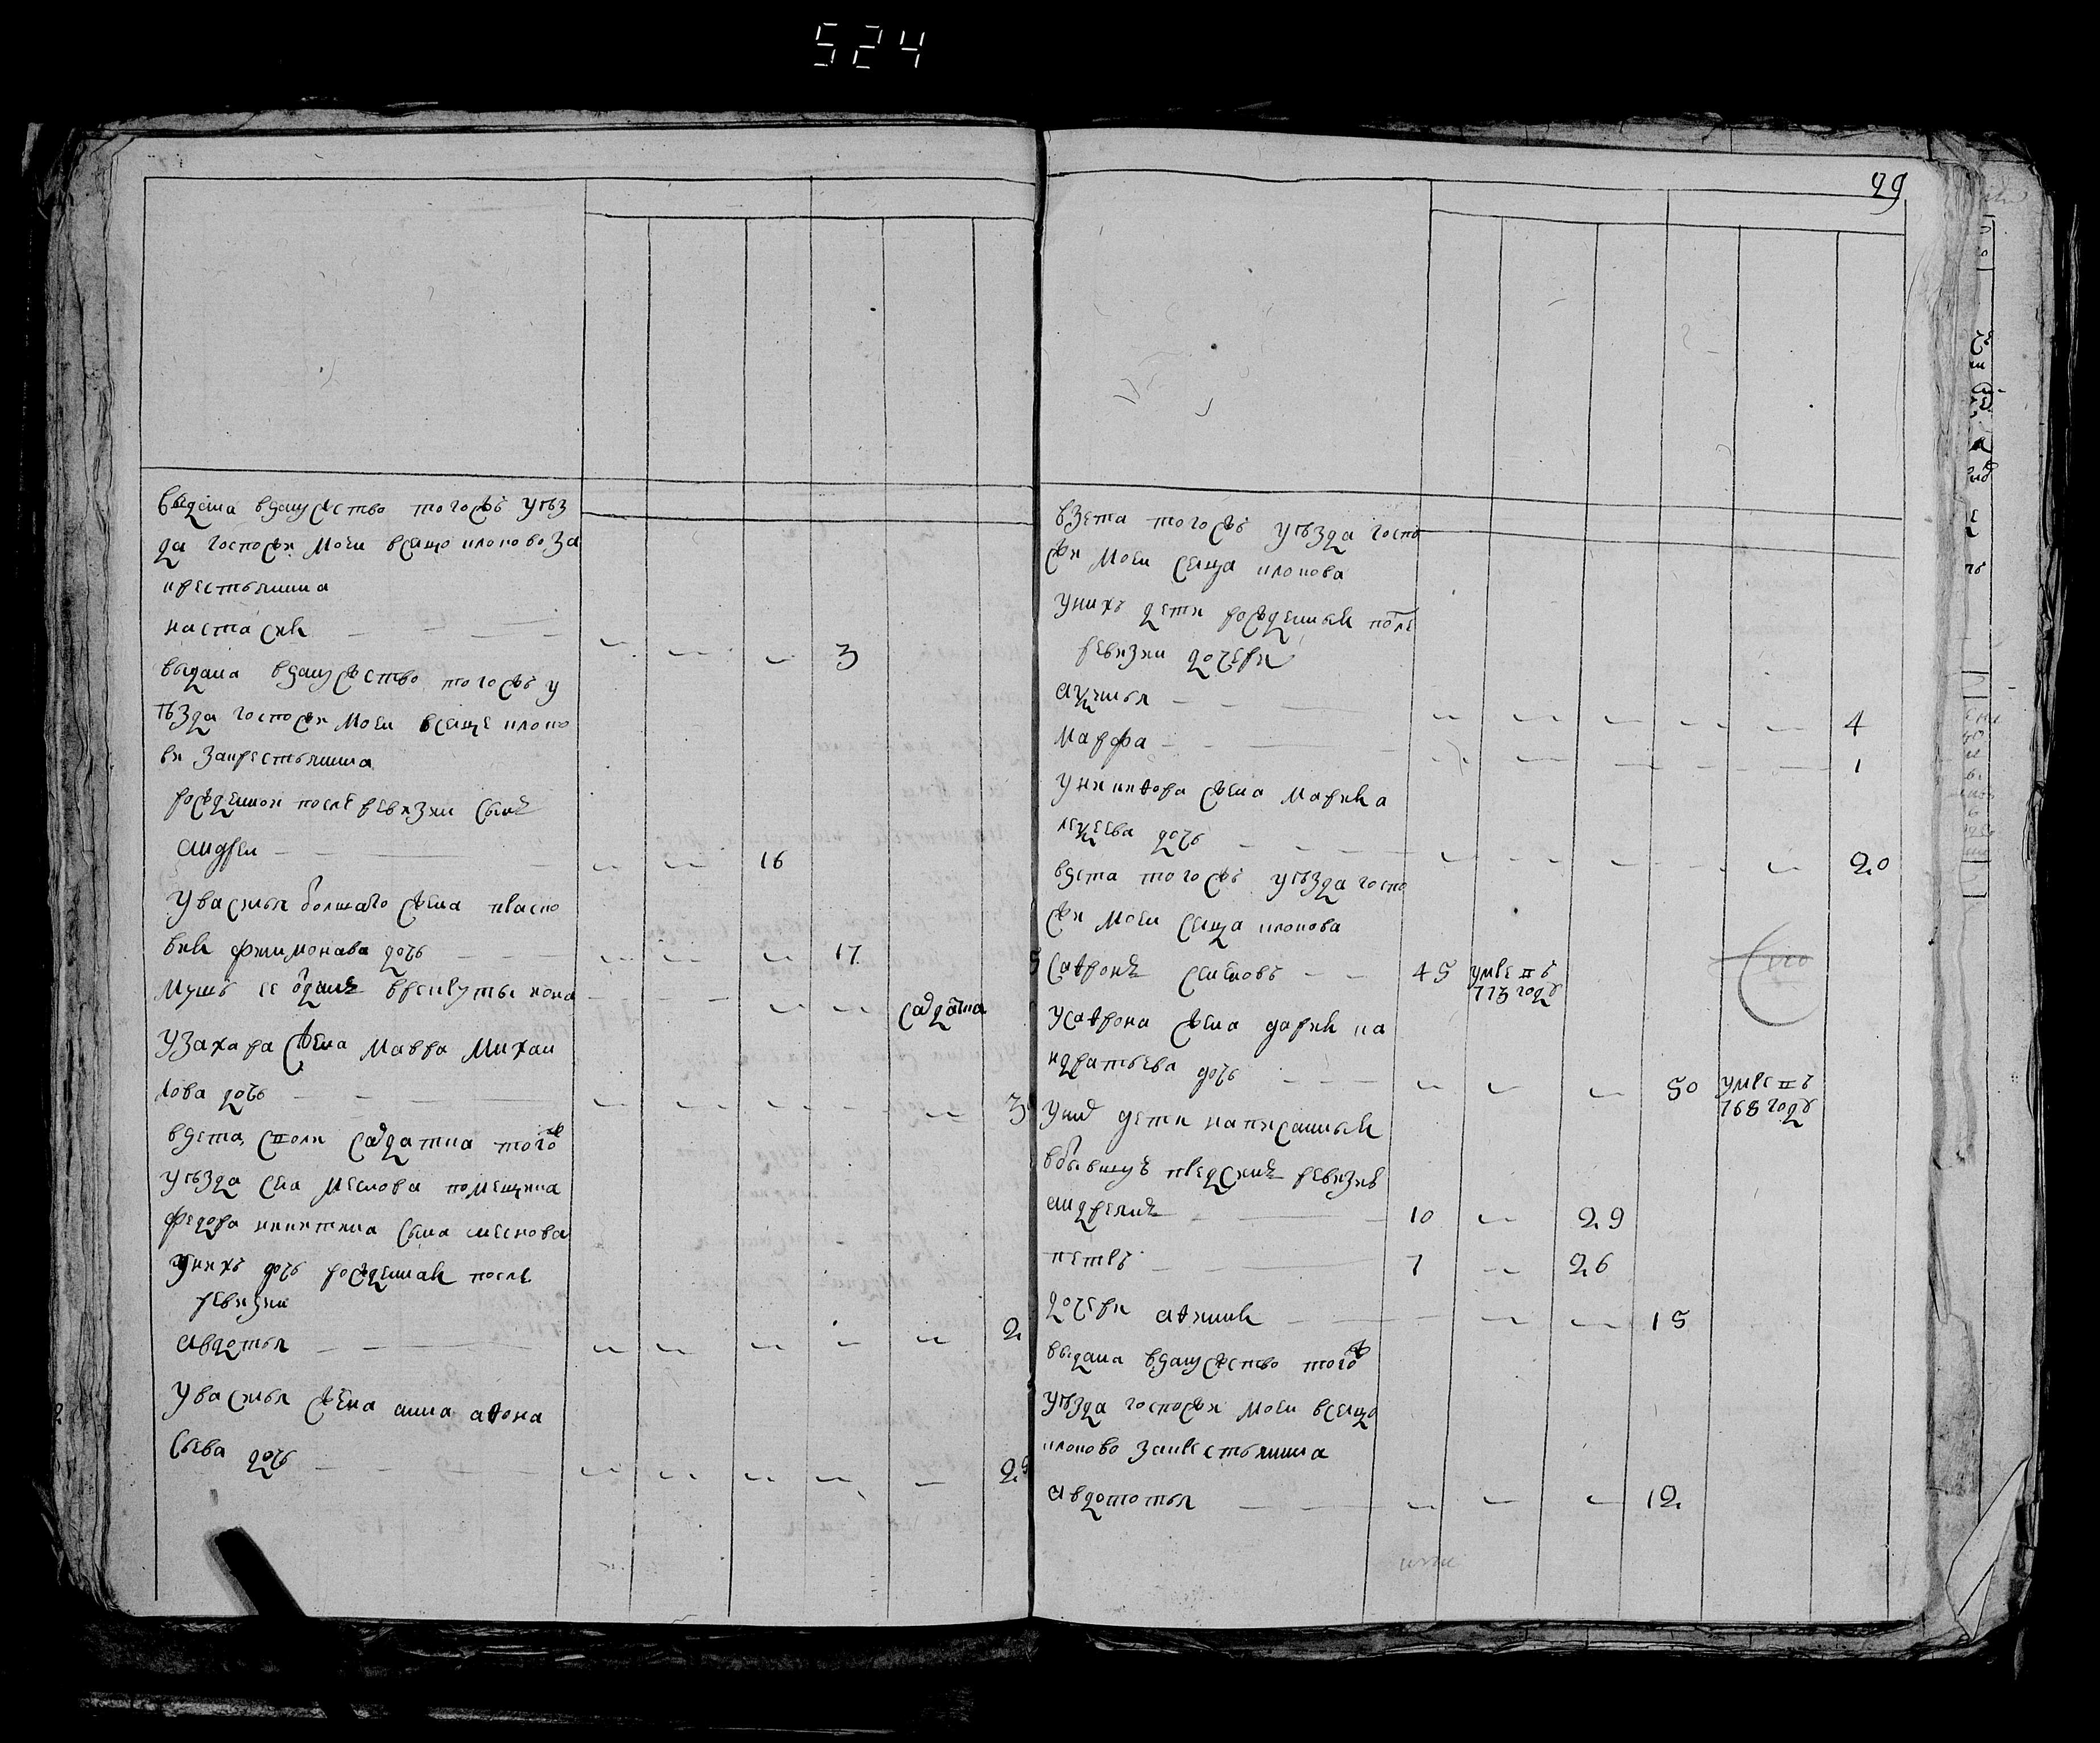 524
выдана взамужство тогожъ уез
да госпожи моеи в селцо клопово за
крестьянина
настасия — — — 3
выдана взамужство тогожъ у
езда госпожи моеи вселце клопо
ви закрестьянина
рожденнои после ревизии сынъ
андреи — — — 16
увасилья болшаго жена праско
вия филимонава дочь — — — 17
мужъ ее отданъ врекруты
салдатка
узахара жена мавра михаи
лова дочь — — —
взета с полк салдатка того ж
уезда села помещика
федора никитина сына
униxъ дочь рожденная после
ревизии
авдотья — — — 2
увасилья жена анна афона
сьева дочь — — —
99
взета тогожъ уезда госпо
жи моеи селца клопова
унихъ дети рожденныя после
ревизии дочери
аксинья — — — 4
марфа — — — 1
уникифора жена мария а
лексеева дочь — — — 20
взета тогожъ уезда госпо
жи моеи селца клопова
сафронъ семеновъ — — 45 умре въ
773 году
усафрона жена дария ка
ндратьева дочь — — — 50 умре въ
768 году
уних дети написанныя
вбывшую пред сим ревизию
андреянъ — 10 — 29
петръ — 7 — 26
дочери афимия — — — 15
выдана взамужство того ж
уезда госпожи моеи вселцо
клопово закрестьянина
авдототья — — — 12